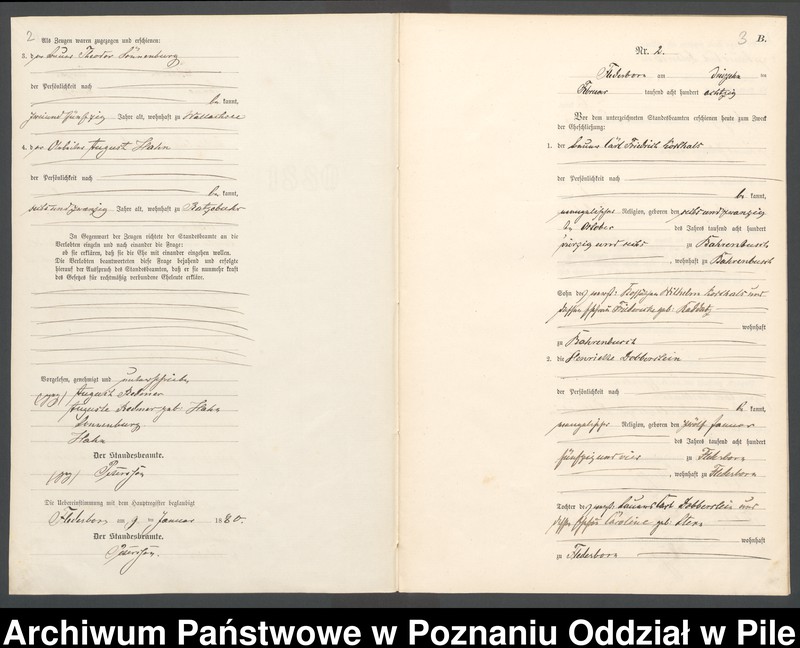 2
Als Zeugen waren zugezogen und erschienen:
3. der Bauer Theodor Sönnenburg
der Persönlichkeit nach
be kannt,
zweiundfünfzig Jahre alt, wohnhaft zu Wallachsee
4. der August Hahn
der Persönlichkeit nach
be kannt,
sechsundzwanzig Jahre alt, wohnhaft zu Ratzebuhr
In Gegenwart der Zeugen richtete der Standesbeamte an die
Verlobten einzeln und nach einander die Frage:
ob sie erklären, daß sie die Ehe mit einander eingehen wollen.
Die Verlobten beantworteten diese Frage bejahend und erfolgte
hierauf der Ausspruch des Standesbeamten, daß er sie nunmehr kraft
des Gesetzes für rechtmäßig verbundene Eheleute erkläre.
Vorgelesen, genehmigt und unterschrieben
(gez) August Redmer
Auguste Redmer geb. Hahn
Sönnenburg
Hahn
Der Standesbeamte.
(gez)
Die Uebereinstimmung mit dem Hauptregister beglaubigt
Flederborn am 9 ten Januar 1880.
Der Standesbeamte.
3
B.
Nr. 2.
Flederborn am dreizehn ten
Februar tausend acht hundert achtzig
Vor dem unterzeichneten Standesbeamten erschienen heute zum Zweck
der Eheschließung:
1. der Bauer Carl Friedrich
der Persönlichkeit nach
be kannt,
evangelischer Religion, geboren den sechsundzwanzig
ten October des Jahres tausend acht hundert
vierzig und sechs zu Bahrenbusch
, wohnhaft zu Bahrenbusch
Sohn des Wilhelm und
dessen Ehefrau Friederike geb:
wohnhaft
zu Bahrenbusch
2. die Henriette Dobberstein
der Persönlichkeit nach
be kannt,
evangelischer Religion, geboren den zwölf Januar
des Jahres tausend acht hundert
fünfzig und vier zu Flederborn
, wohnhaft zu Flederborn
Tochter des Bauers Carl Dobberstein und
dessen Ehefrau Caroline geb. Stenz
wohnhaft
zu Flederborn
Archiwum Państwowe w Poznaniu Oddział w Pile